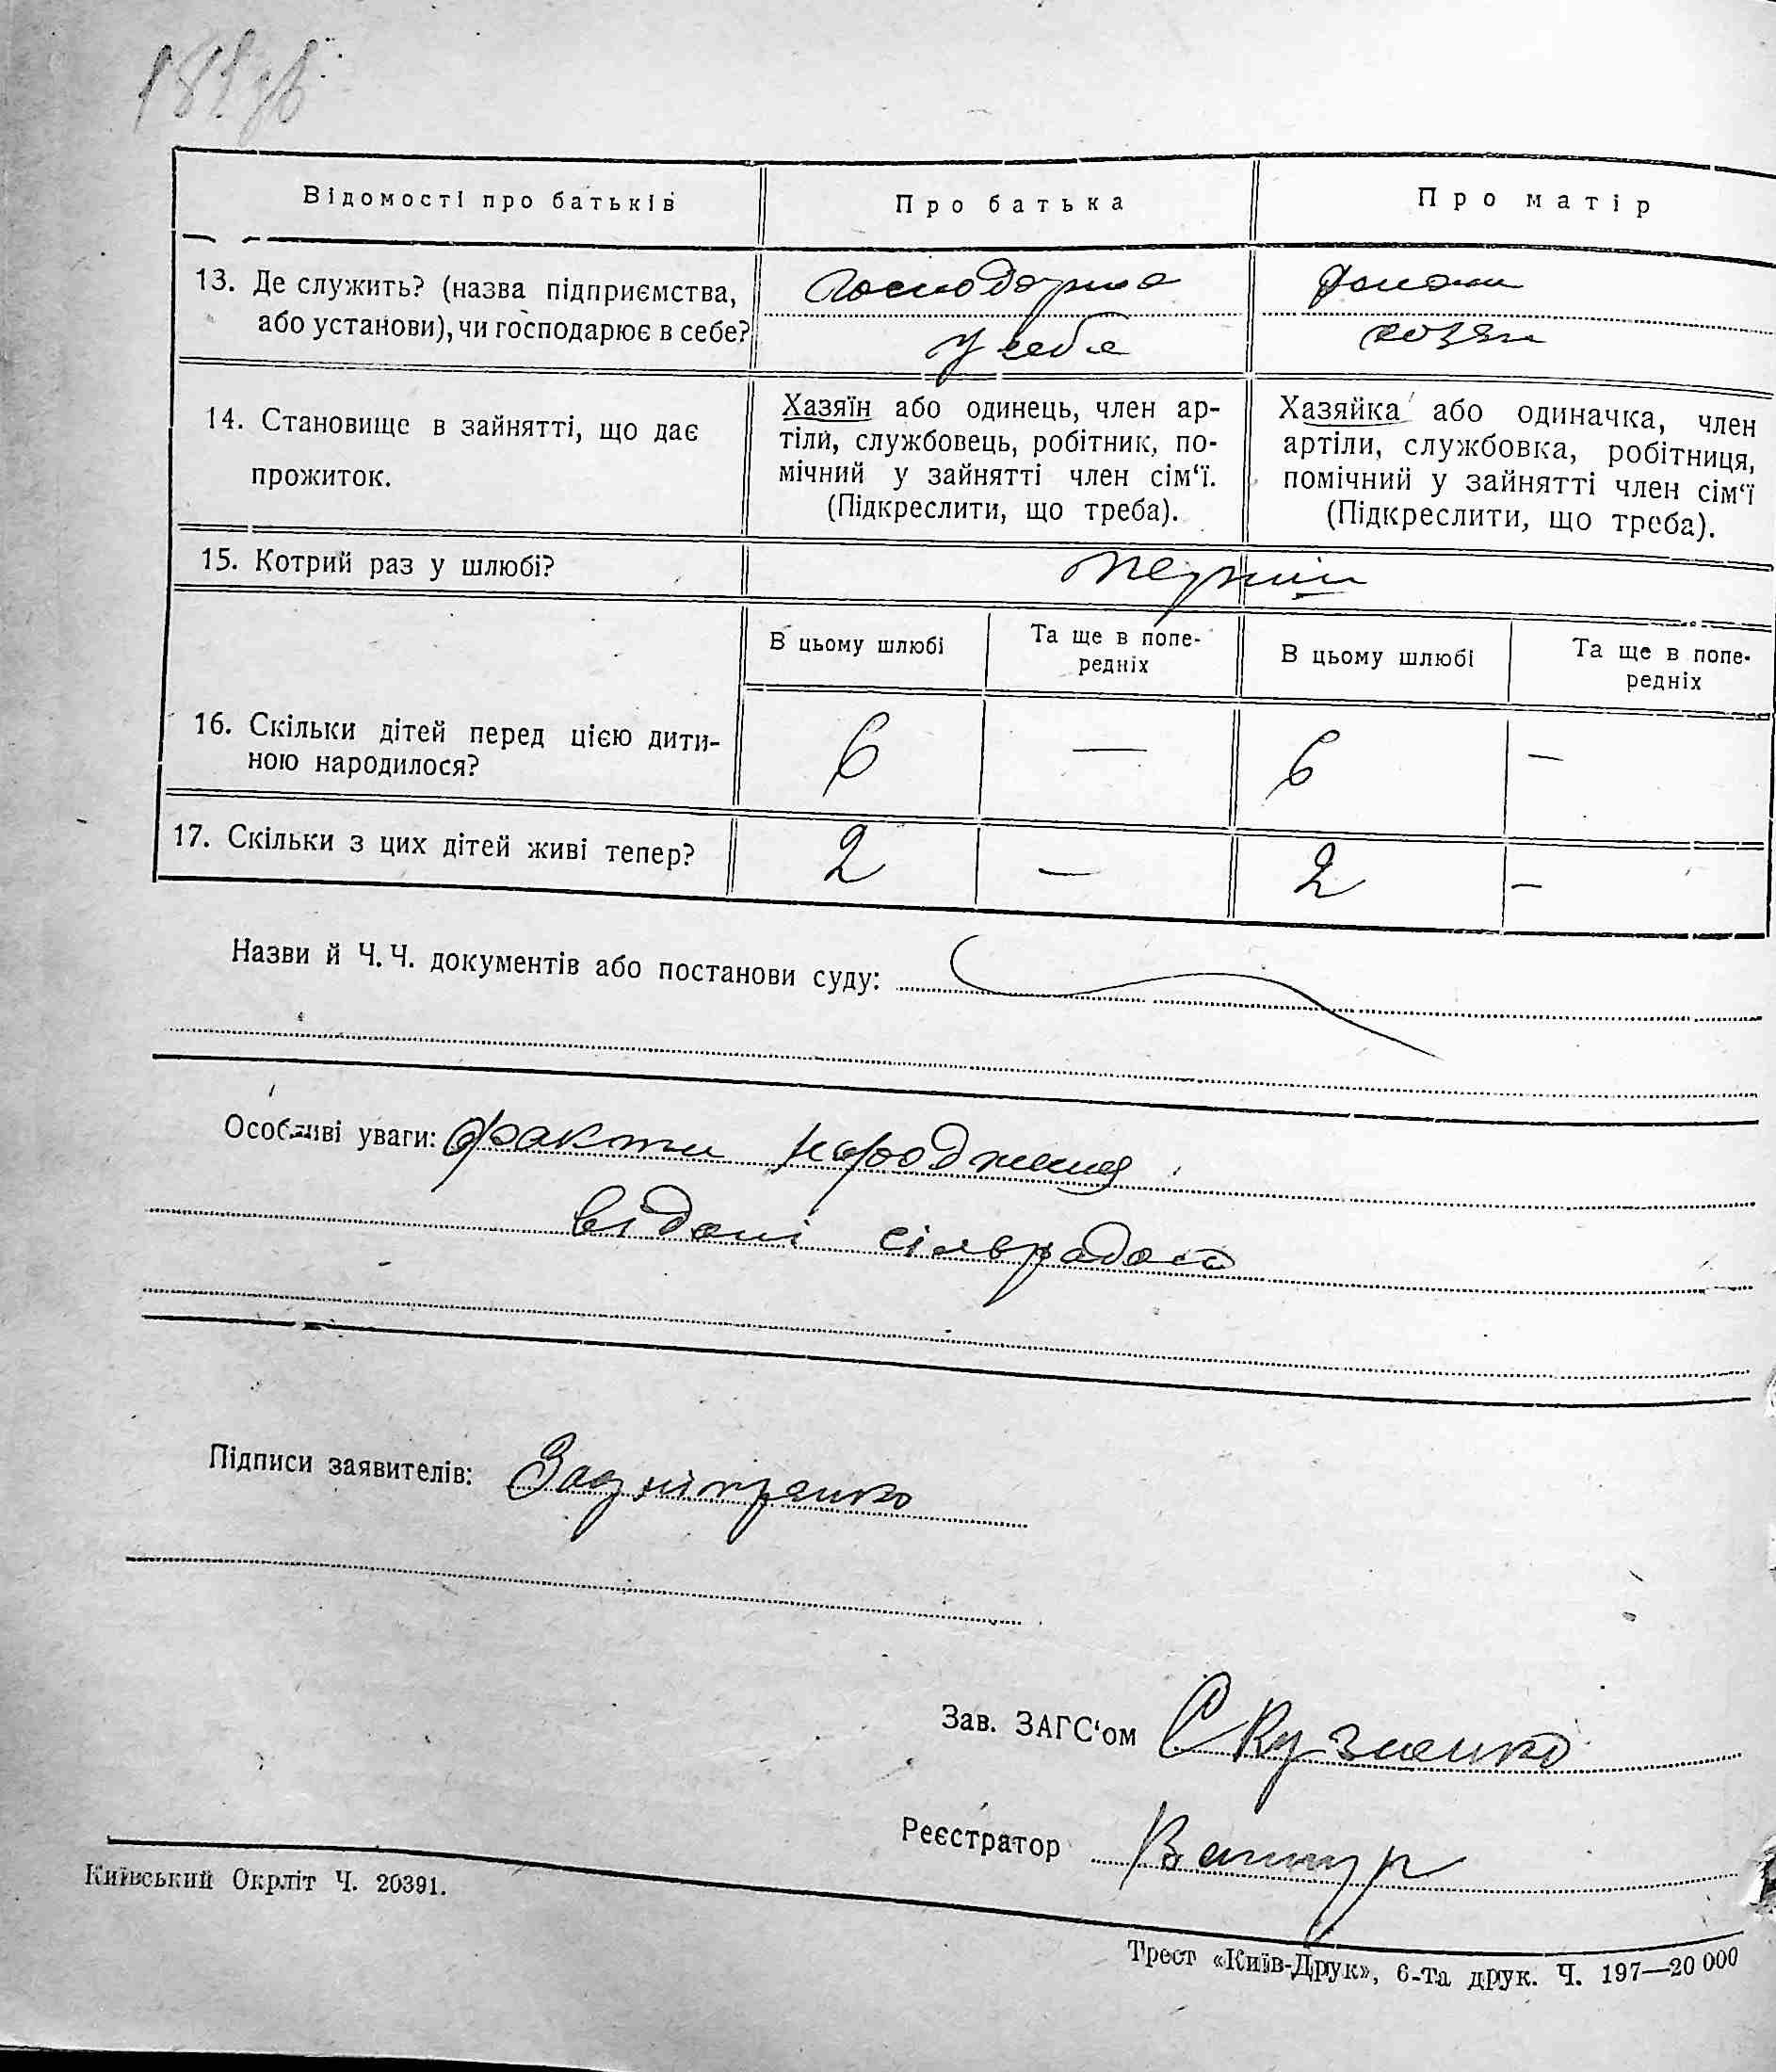 Відомості про батьків
Про батька
Про матір
13. Де служить? (назва підприємства,
або установи), чи господарює в себе?
Господарює
у себе
домашн
хозяй
14. Становище в зайнятті, що дає
прожиток.
Хазяїн або одинець, член ар-
тіли, службовець, робітник, по-
мічний у зайнятті член сім‘ї.
(Підкреслити, що треба).
Хазяйка або одиначка, член
артіли, службовка, робітниця,
помічний у зайнятті член сім‘ї
(Підкреслити, що треба).
15. Котрий раз у шлюбі?
перший
В цьому шлюбі
Та ще в попе-
редніх
В цьому шлюбі
Та ще в попе-
редніх
16. Скільки дітей перед цією дити-
ною народилося?
6 — 6 —
17. Скільки з цих дітей живі тепер?
2 — 2 —
Назви й Ч. Ч. документів або постанови суду:
Особливі уваги: факти народження
відомі сільрадою
Підписи заявителів: Задніпрянко
Зав. ЗАГС‘ом С Кузменко
Реєстратор
Київський Окрліт Ч. 20391.
Трест «Київ-Друк», 6-та друк. Ч. 197—20 000